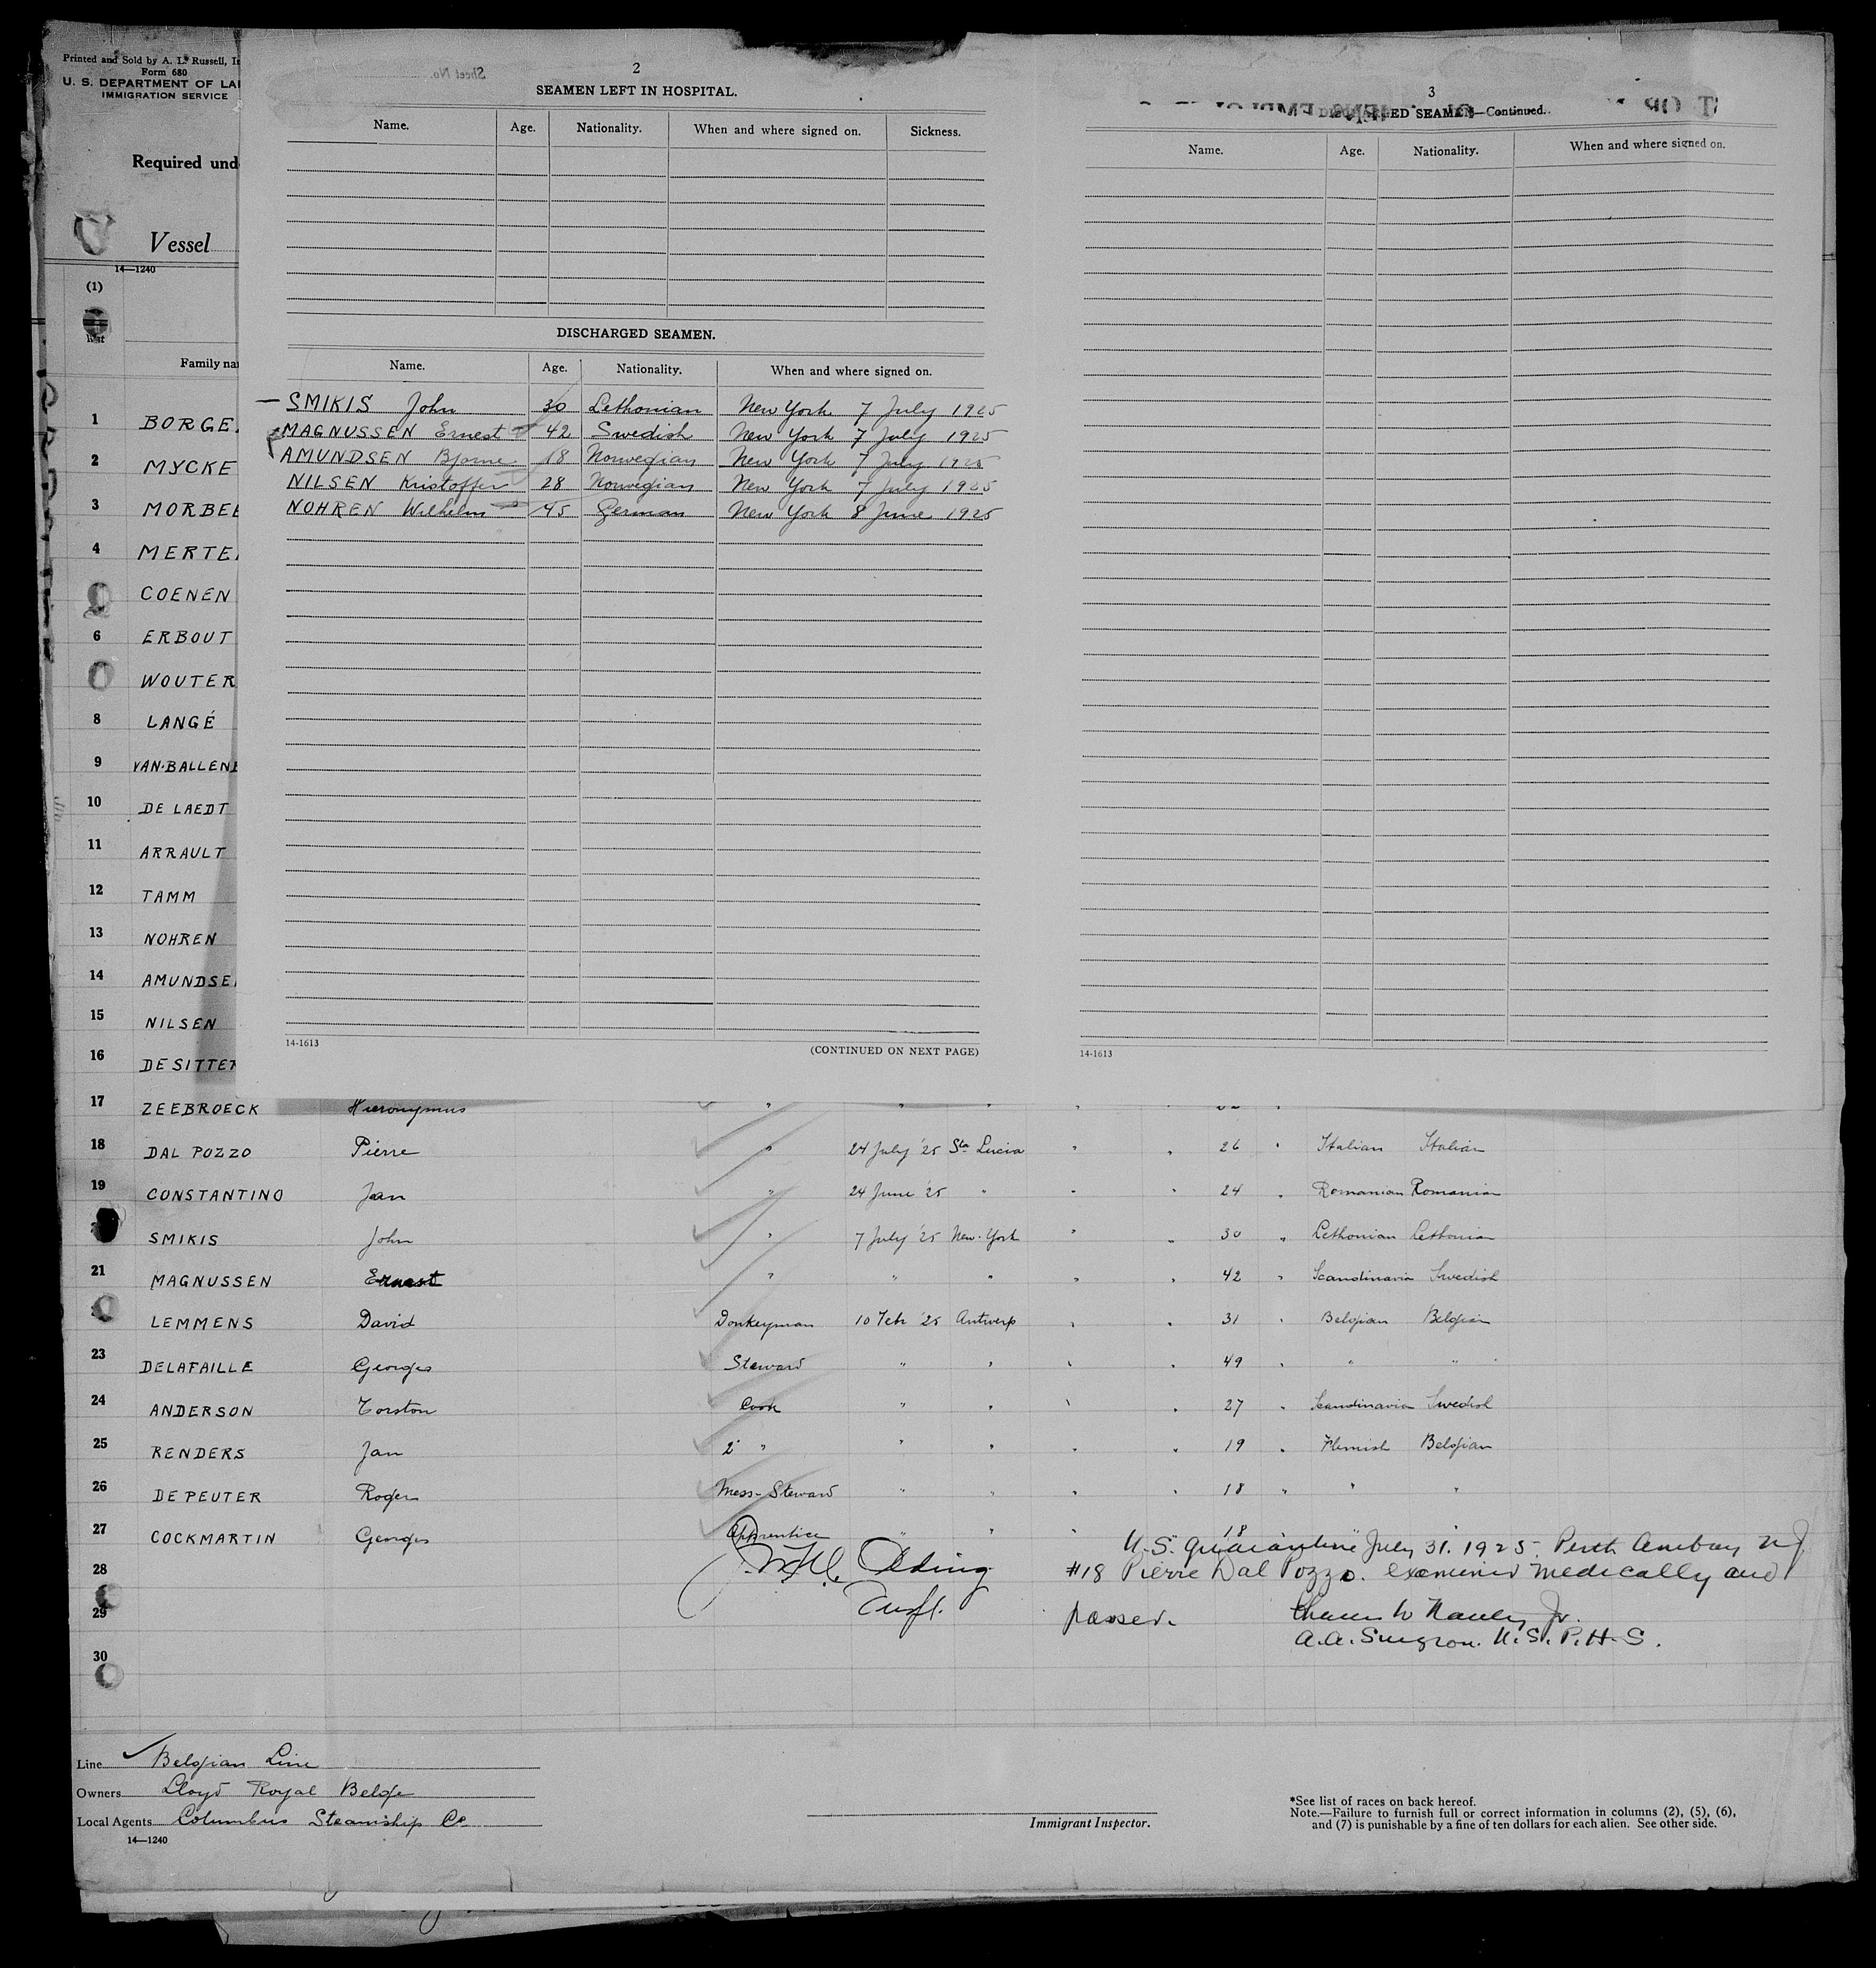 Printed and Sold by A. L. Russell, In
Form 680
U. S. DEPARTMENT OF LA
IMMIGRATION SERVICE
Required und
Vessel
14—1240
(1)
Family na
1 BORGE
2 MYCKE
3 MORBEE
4 MERTE
COENEN
6 ERBOUT
WOUTER
8 LANGÉ
9 VAN BALLENB
10 DE LAEDT
11 ARRAULT
12 TAMM
13 NOHREN
14 AMUNDSE
15 NILSEN
16 DE SITTER
Sheet No.
2
SEAMEN LEFT IN HOSPITAL.
Name. Age. Nationality. When and where signed on. Sickness.
DISCHARGED SEAMEN.
Name. Age. Nationality. When and where signed on.
SMIKIS John 30 Lethonian New York 7 July 1925
MAGNUSSEN Ernest 42 Swedish New York 7 July 1925
AMUNDSEN Bjorne 18 Norwegian New York 7 July 1925
NILSEN Kristoffer 28 Norwegian New York 7 July 1925
NOHREN Wilhelm 45 German New York 8 June 1925
14-1613 (CONTINUED ON NEXT PAGE)
3
SEAMEN—Continued.
Name. Age. Nationality. When and where signed on.
14-1613
17 ZEEBROECK Hieronymus " " " " "
18 DAL POZZO Pierre " 24 July '25 Sta Lucia " " 26 " Italian Italian
19 CONSTANTINO Jan " 24 June '25 " " " 24 " Romanian Romanian
SMIKIS John " 7 July '25 New-York " " 30 " Lethonian Lethonian
21 MAGNUSSEN Ernest " " " " " 42 " Scandinavia Swedish
LEMMENS David Donkeyman 10 Feb '25 Antwerp " " 31 " Belgian Belgian
23 DELAFAILLE Georges Steward " " " " 49 " " "
24 ANDERSON Torston Cook " " " " 27 " Scandinavia Swedish
25 RENDERS Jan 2° " " " " " 19 " Flemish Belgian
26 DE PEUTER Roger Mess-Steward " " " " 18 " " "
27 COCKMARTIN Georges Apprentice " " " 18 " "
U.S. Quarantine July 31. 1925. Perth Amboy NJ.
28 #18 Pierre Dal Pozzo. examined medically and
29 passed.
A.A. Surgeon. U.S.P.H.S.
30
Line Belgian Line
Owners Lloyd Royal Belge
Local Agents Columbus Steamship Co
14—1240
Immigrant Inspector.
*See list of races on back hereof.
Note.—Failure to furnish full or correct information in columns (2), (5), (6),
and (7) is punishable by a fine of ten dollars for each alien. See other side.